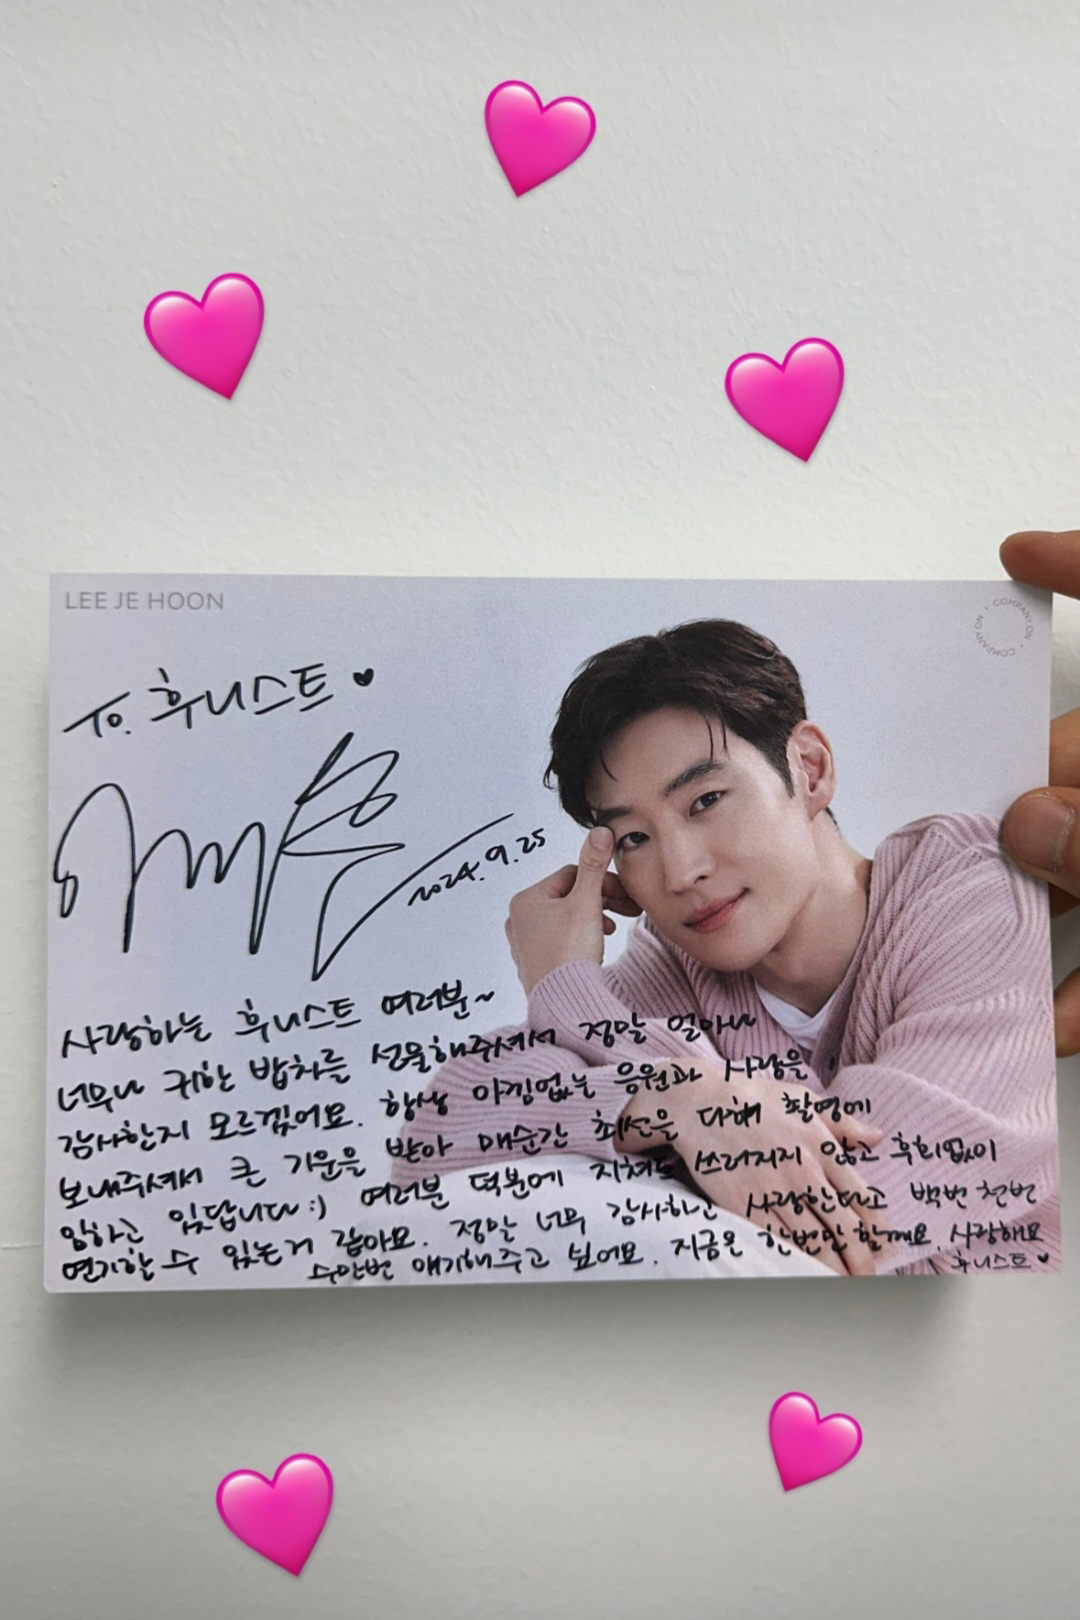 LEE JE HOON
COMPANY ON • COMPANY ON •
To. 후니스트 ♥
2024.9.25
사랑하는 후니스트 여러분~
너무나 귀한 밥차를 선물해주셔서 정말 얼마나
감사한지 모르겠어요. 항상 아낌없는 응원과 사랑을
보내주셔서 큰 기운을 받아 매순간 최선을 다해 촬영에
임하고 있답니다 :) 여러분 덕분에 지쳐도 쓰러지지 않고 후회없이
연기할 수 있는거 같아요. 정말 너무 감사하고 사랑한다고 백번 천번
수만번 얘기해주고 싶어요. 지금은 한번만 할께요. 사랑해요
후니스트 ♥